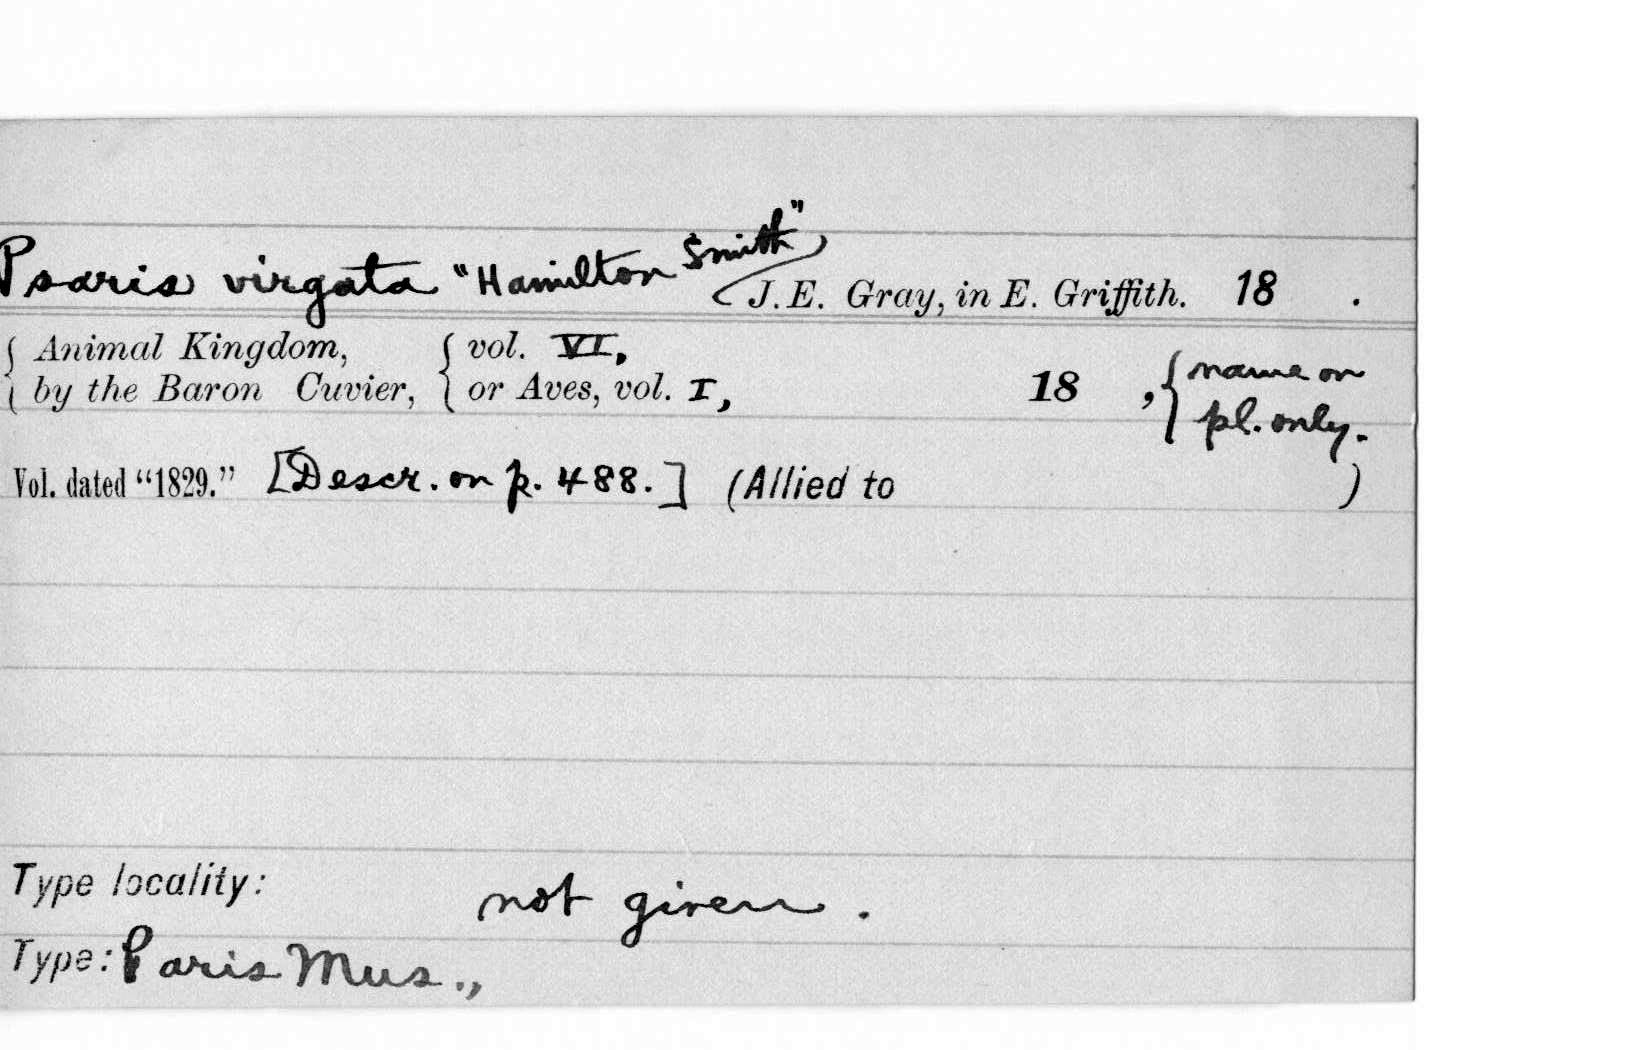 Psaris virgata "Hamilton Smith"
J.E. Gray, in E. Griffith. 18 .
Animal Kingdom, vol. VI, name on
by the Baron Cuvier, or Aves, vol. I, 18 , pl. only.
Vol. dated "1829." [Descr. on p. 488.] (Allied to )
Type locality: not given.
Type: Paris Mus.,